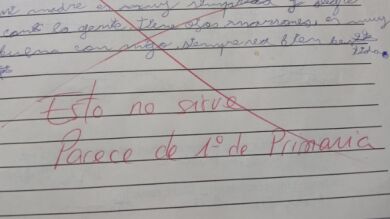 mi madre es muy simpática y alegre
con la gente, tiene ojos marrones, es muy
buena conmigo, siempre
Esto no sirve
Parece de 1º de Primaria